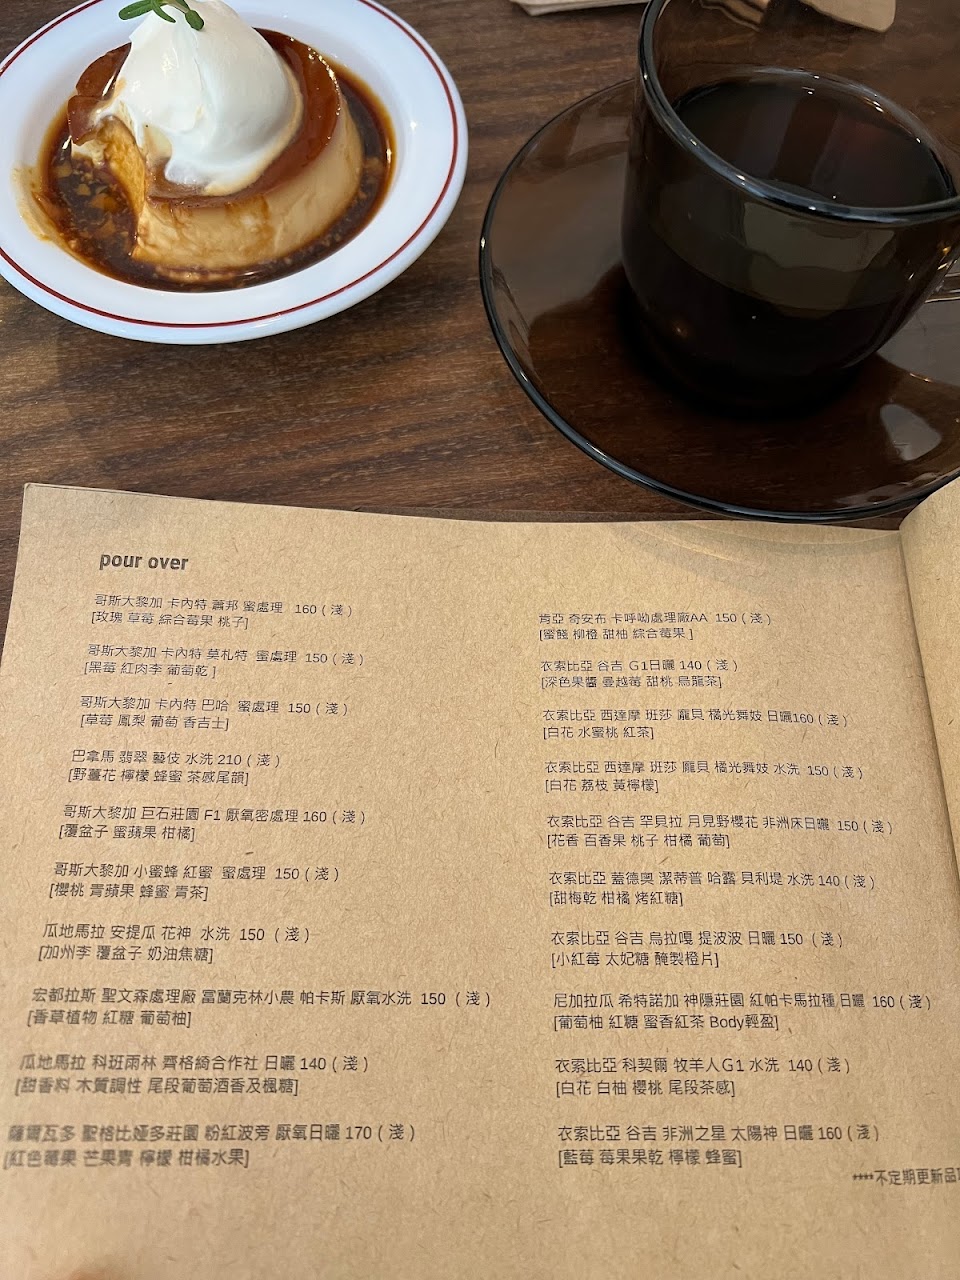 pour over
哥斯大黎加 卡內特 蕭邦 蜜處理 160 ( 淺 )
[玫瑰 草莓 綜合莓果 桃子]
哥斯大黎加 卡內特 莫札特 蜜處理 150 ( 淺 )
[黑莓 紅肉李 葡萄乾 ]
哥斯大黎加 卡內特 巴哈 蜜處理 150 ( 淺 )
[草莓 鳳梨 葡萄 香吉士]
巴拿馬 翡翠 藝伎 水洗 210 ( 淺 )
[野薑花 檸檬 蜂蜜 茶感尾韻]
哥斯大黎加 巨石莊園 F1 厭氧密處理 160 ( 淺 )
[覆盆子 蜜蘋果 柑橘]
哥斯大黎加 小蜜蜂 紅蜜 蜜處理 150 ( 淺 )
[櫻桃 青蘋果 蜂蜜 青茶]
瓜地馬拉 安提瓜 花神 水洗 150 ( 淺 )
[加州李 覆盆子 奶油焦糖]
宏都拉斯 聖文森處理廠 富蘭克林小農 帕卡斯 厭氧水洗 150 ( 淺 )
[香草植物 紅糖 葡萄柚]
瓜地馬拉 科班雨林 齊格綺合作社 日曬 140 ( 淺 )
[甜香料 木質調性 尾段葡萄酒香及楓糖]
薩爾瓦多 聖格比婭多莊園 粉紅波旁 厭氧日曬 170 ( 淺 )
[紅色莓果 芒果青 檸檬 柑橘水果]
肯亞 奇安布 卡呼呦處理廠AA 150 ( 淺 )
[蜜餞 柳橙 甜柚 綜合莓果 ]
衣索比亞 谷吉 G1日曬 140 ( 淺 )
[深色果醬 曼越莓 甜桃 烏龍茶]
衣索比亞 西達摩 班莎 龐貝 橘光舞妓 日曬160 ( 淺 )
[白花 水蜜桃 紅茶]
衣索比亞 西達摩 班莎 龐貝 橘光舞妓 水洗 150 ( 淺 )
[白花 荔枝 黃檸檬]
衣索比亞 谷吉 罕貝拉 月見野櫻花 非洲床日曬 150 ( 淺 )
[花香 百香果 桃子 柑橘 葡萄]
衣索比亞 蓋德奧 潔蒂普 哈露 貝利堤 水洗 140 ( 淺 )
[甜梅乾 柑橘 烤紅糖]
衣索比亞 谷吉 烏拉嘎 提波波 日曬 150 ( 淺 )
[小紅莓 太妃糖 醃製橙片]
尼加拉瓜 希特諾加 神隱莊園 紅帕卡馬拉種 日曬 160 ( 淺 )
[葡萄柚 紅糖 蜜香紅茶 Body輕盈]
衣索比亞 科契爾 牧羊人G1 水洗 140 ( 淺 )
[白花 白柚 櫻桃 尾段茶感]
衣索比亞 谷吉 非洲之星 太陽神 日曬 160 ( 淺 )
[藍莓 莓果果乾 檸檬 蜂蜜]
****不定期更新品